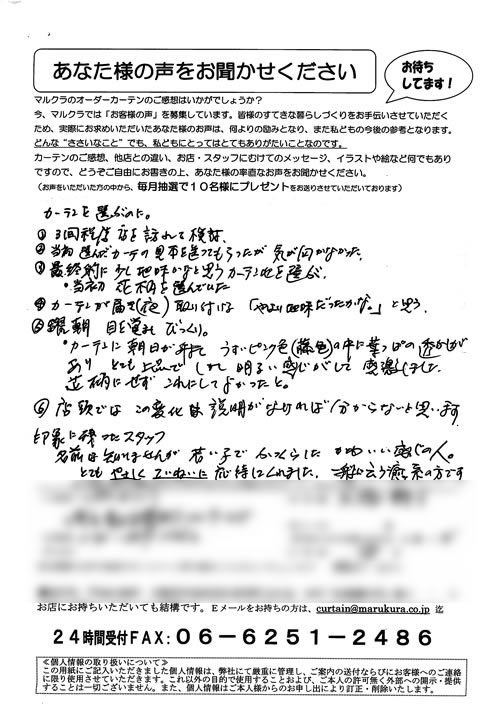 あなた様の声をお聞かせください
お待ち
してます!
マルクラのオーダーカーテンのご感想はいかがでしょうか?
今、マルクラでは「お客様の声」を募集しています。皆様のすてきな暮らしづくりをお手伝いさせていただく
ため、実際にお求めいただいたあなた様のお声は、何よりの励みとなり、また私どもの今後の参考となります。
どんな“ささいなこと”でも、私どもにとってはとてもありがたいことなのです。
カーテンのご感想、他店との違い、お店・スタッフにむけてのメッセージ、イラストや絵など何でもあり
ですので、どうぞご自由にお書きの上、あなた様の率直なお声をお聞かせください。
(お声をいただいた方の中から、毎月抽選で10名様にプレゼントをお送りさせていただいております)
カーテンを選ぶのに。
① 3回程店を訪れて検討。
② 当初選んだカーテンの見本を送ってもらったが気が向かなかった。
③ 最終的に少し地味かなと思うカーテン地を選ぶ。
・当初 花柄を選んでいた
④ カーテンが届き(夜)取り付ける「やはり地味だったかな。」と思う。
⑤ 翌朝 目を覚ましびっくり。
・カーテンに朝日が射して うすいピンク色(藤色)の中に葉っぱの透かしが
あり とても上品で しかし明るい感じがして 感激しました。
花柄にせず これにしてよかったと。
⑥ 店頭では この変化は 説明がなければ分からないと思います
印象に残ったスタッフ
名前は知りませんが 若い子で ふっくらした かわいい感じの人。
とても やさしく ていねいに 応待してくれました。
お店にお持ちいただいても結構です。Eメールをお持ちの方は、curtain@marukura.co.jp 迄
24時間受付FAX:06-6251-2486
≪個人情報の取り扱いについて≫
この用紙にご記入いただきました個人情報は、弊社にて厳重に管理し、ご案内の送付ならびにお客様へのご連絡
に限り使用させていただきます。これ以外の目的で使用することおよび、ご本人の許可無く外部への開示・提供
することは一切ございません。また、個人情報はご本人様からのお申し出により訂正・削除いたします。